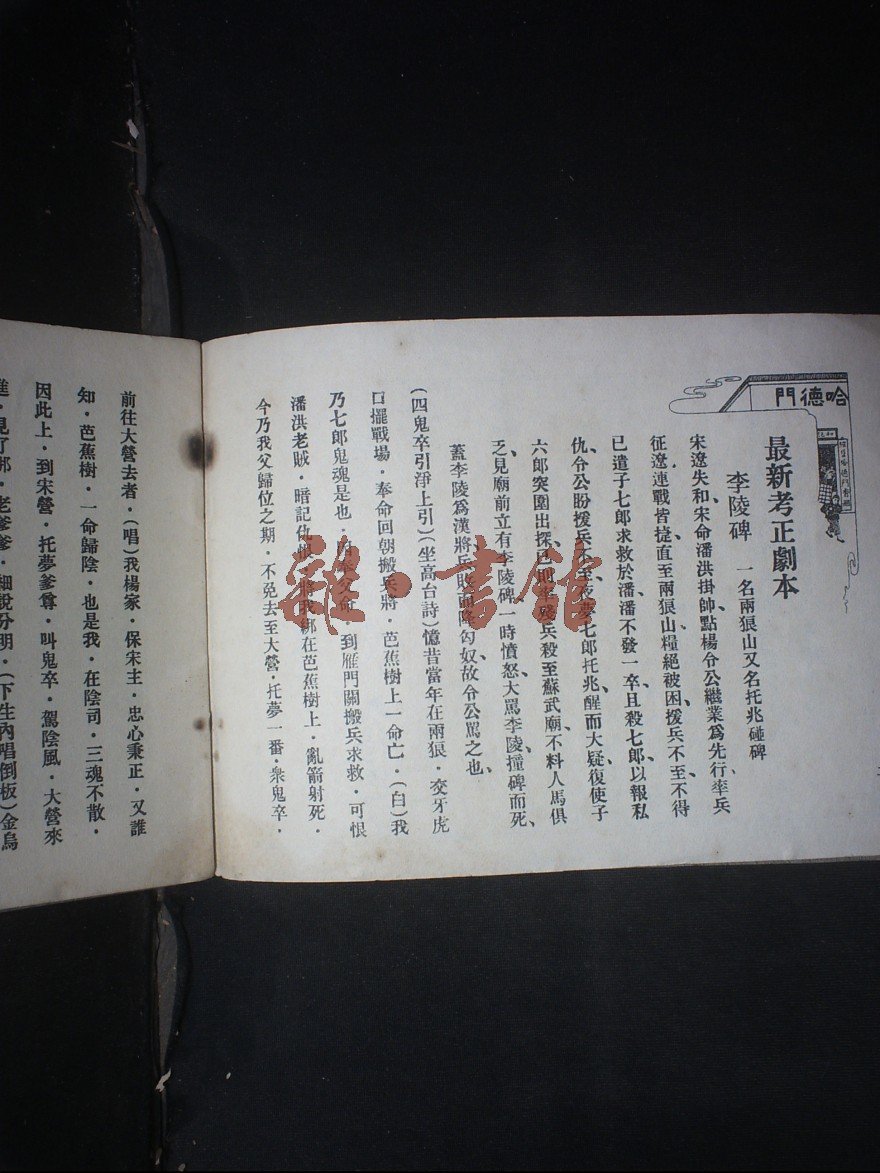 哈德門
最新考正劇本
李陵碑 一名兩狼山又名托兆碰碑
宋遼失和、宋命潘洪掛帥、點楊令公繼業爲先行、率兵
征遼、連戰皆捷、直至兩狼山、糧絕被困、援兵不至、不得
已遣子七郎求救於潘、潘不發一卒、且殺七郎、以報私
仇、令公盼援兵不至、夜夢七郎托兆、醒而大疑、復使子
六郎突圍出探、已則率殘兵殺至蘇武廟、不料人馬俱
乏、見廟前立有李陵碑、一時憤怒、大罵李陵、撞碑而死、
蓋李陵爲漢將、兵敗而降匈奴、故令公罵之也、
(四鬼卒引淨上引)(坐高台詩)憶昔當年在兩狼．交牙虎
口擺戰場．奉命回朝搬兵將．芭蕉樹上一命亡．(白)我
乃七郎鬼魂是也．父命．到雁門關搬兵求救．可恨
潘洪老賊．暗記仇恨．將我綁在芭蕉樹上．亂箭射死．
今乃我父歸位之期．不免去至大營．托夢一番．衆鬼卒．
前往大營去者．(唱)我楊家．保宋主．忠心秉正．又誰
知．芭蕉樹．一命歸陰．也是我．在陰司．三魂不散．
因此上．到宋營．托夢爹尊．叫鬼卒．駕陰風．大營來
進．見了那．老爹爹．細說分明．(下生內唱倒板)金烏
雜·書館